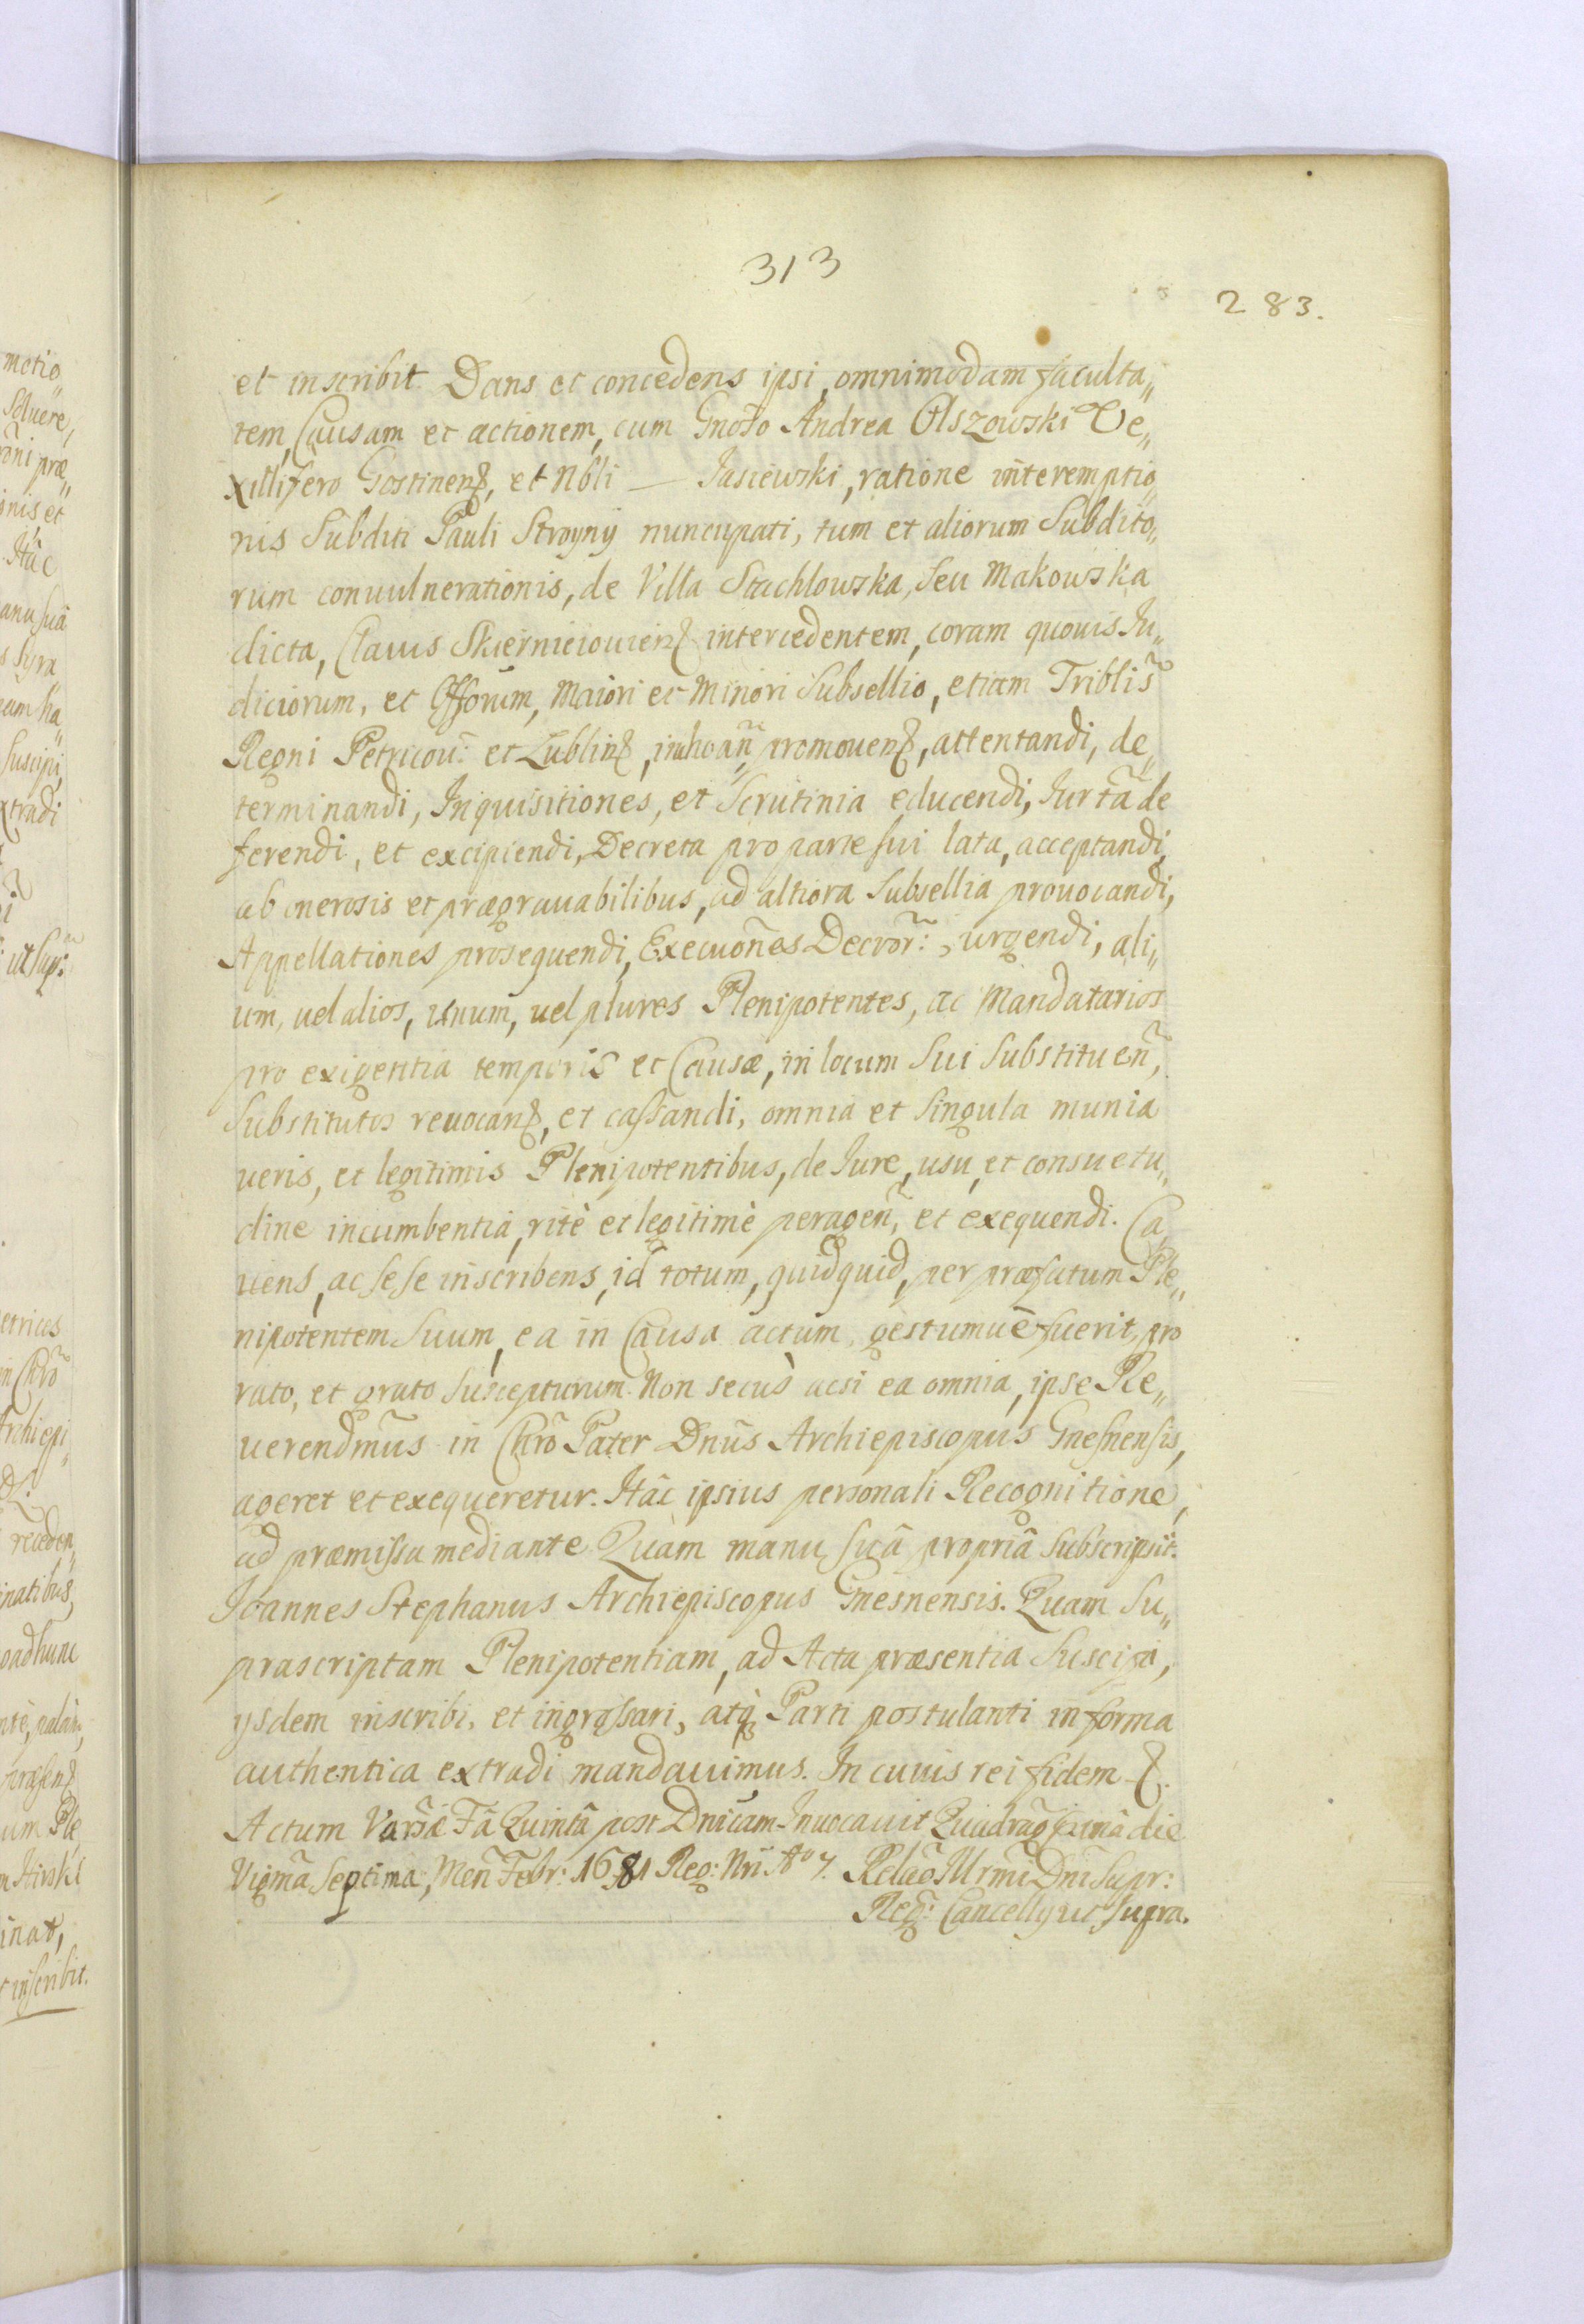 313
283.
et inscribit Dans et concedens ipsi, omnimodam faculta„
tem, Causam et actionem, cum Gnoso Andrea Olszowski Ve„
xillifero Gostinenß, et Nbli — Jasiewski, ratione interemptio„
nis Subditi Pauli Stroyny nuncupati, tum et aliorum Subdito„
rum convulnerationis, de Villa Stachlowska, seu Makowska
dicta, Clavis Skierniewicenß intercedentem, coram quovis Ju„
diciorum, et Offorum, Maiori et Minori Subsellio, etiam Triblis
Regni Petricov: et Lublinß, inchoan̄, promovenß, attentandi, de„
terminandi, Inquisitiones, et Scrutinia educendi, Jurta de
ferendi, et excipiendi, Decreta pro parte sui lata, acceptandi,
ab onerosis et prægravabilibus, ad altiora Subsellia provocandi,
Appellationes prosequendi, Execuones Decror: urgendi, ali„
um, vel alios, unum, vel plures Plenipotentes, ac Mandatarios
pro exigentia temporis et Causæ, in locum Sui substituen̄,
Substitutos revocanß, et cassandi, omnia et singula munia
veris, et legitimis Plenipotentibus, de Jure, usu, et consuetu„
dine incumbentia, ritè et legitimè peragen̄, et exequendi. Ca„
vens, ac sese inscribens, id totum, quidquid, per præfatum Ple„
nipotentem Suum, ea in Causa actum gestumvè fuerit, pro
rato, et grato suscepturum. Non secùs acsi ea omnia, ipse Re„
verendmus in Chro Pater Dnus Archiepiscopus Gnesnensis,
ageret et exequeretur. Hâc ipsius personali Recognitione,
ad præmissa mediante. Quam manu suâ propriâ subscripsit.
Joannes Stephanus Archiepiscopus Gnesnensis. Quam Su„
prascriptam Plenipotentiam, ad Acta præsentia suscipi,
ysdem inscribi, et ingrossari, atq Parti postulanti in forma
authentica extradi mandavimus. In cuius rei fidem ß.
Actum Varsæ Fâ Quintâ post Dnicam Invocavit Quadragesimâ die
Vigmâ Septima, Men Febr: 1681 Reg: Nri Ao 7. Relão Illrmi Dni Supr:
Reg: Cancelly ut supra.